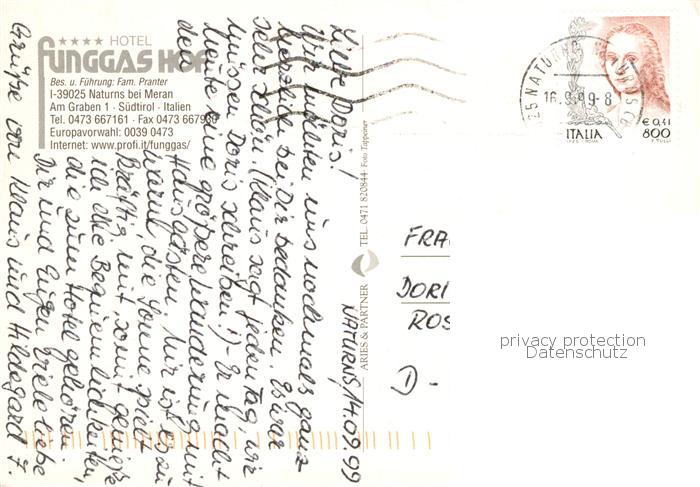 ★★★★ HOTEL
FUNGGAS HOF
Bes. u. Führung: Fam. Pranter
I-39025 Naturns bei Meran
Am Graben 1 · Südtirol · Italien
Tel. 0473 667161 · Fax 0473 667930
Europavorwahl: 0039 0473
Internet: www.profi.it/funggas/
NATURNS, 14.09.99
Liebe Doris!
Wir möchten uns nochmals ganz
herzlich bei Dir bedanken. Es war
sehr schön. (Klaus sagt jeden Tag, wir
müssen Doris schreiben!) - Er macht
heute eine größere Wanderung mit
den Hausgästen. Mir ist es zu
warm, die Sonne
kräftig mit, somit genieße
ich die Bequemlichkeiten,
die zum Hotel gehören.
Dir und Eugen viele liebe
Grüße von Klaus und Hildegard
ARIES & PARTNER
TEL. 0471 820844 · Foto Tappeiner
16.9.99-8
ITALIA
€ 0,41
800
FRA
DORI
ROS
D -
privacy protection
Datenschutz